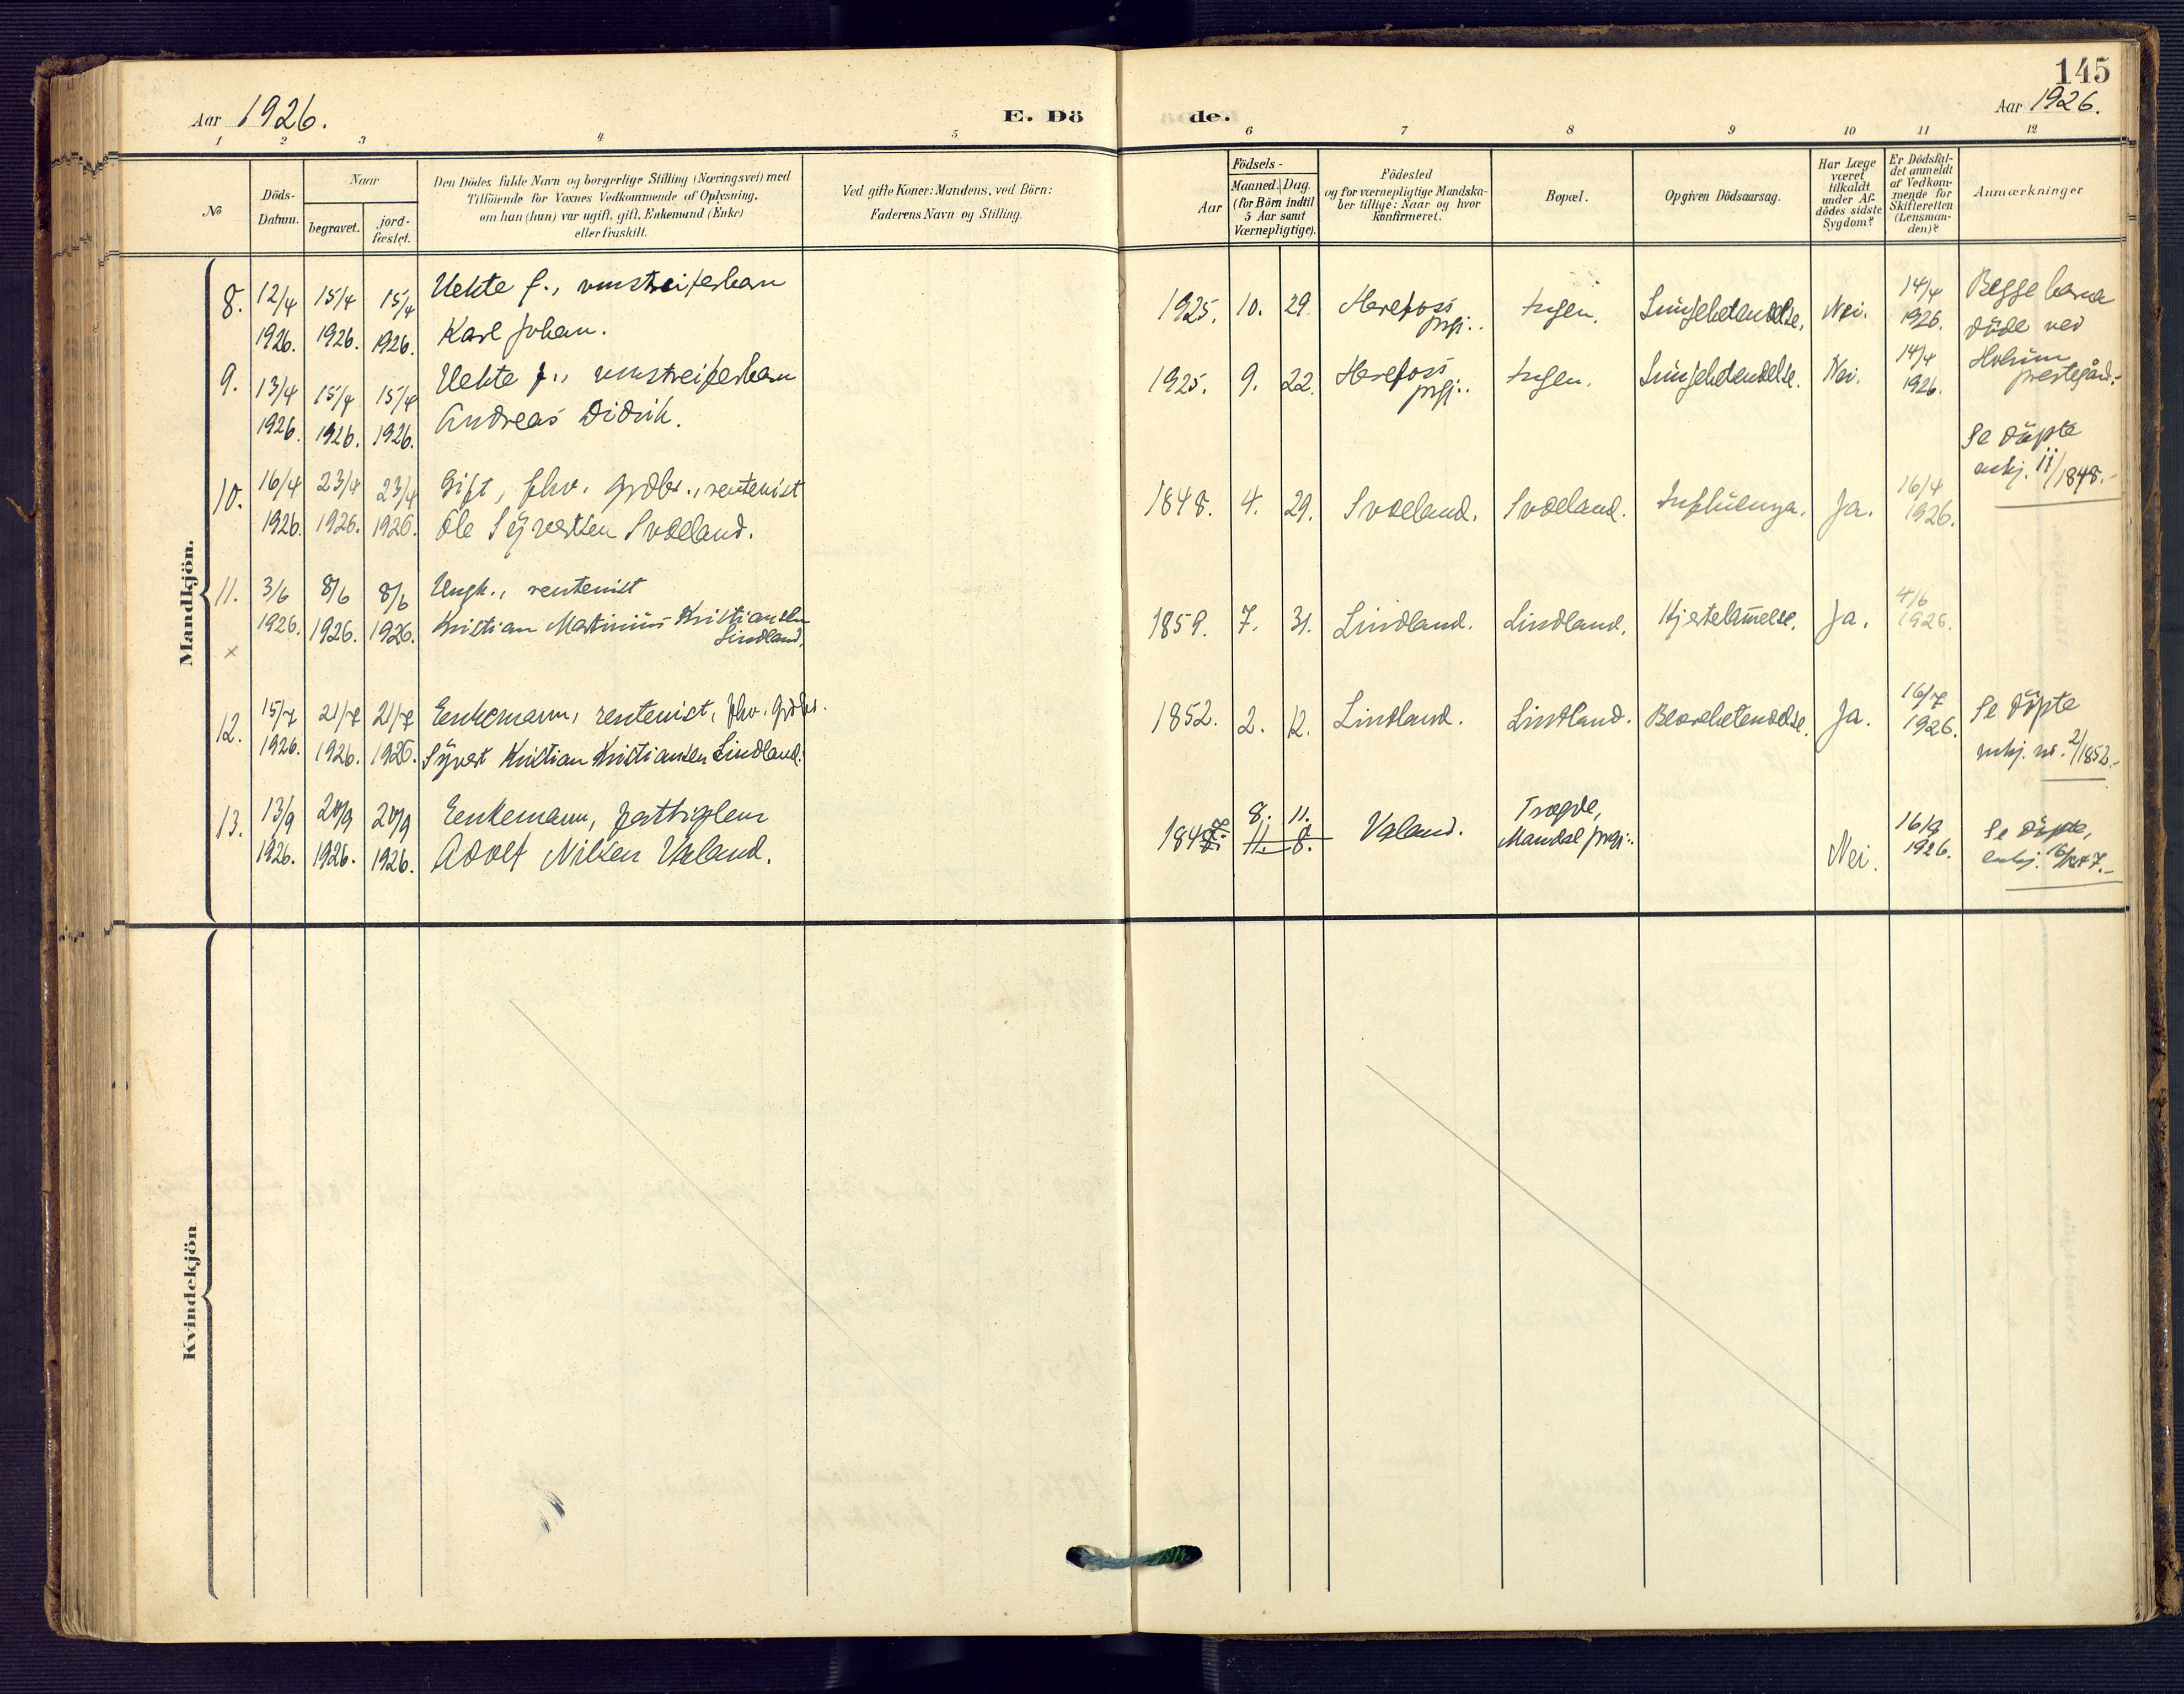 145
Aar 1926.
E. Dö
de.
Aar 1926.
1 2 3 4 5 6 7 8 9 10 11 12
No
Döds-
Datum.
Naar
begravet.
jord-
fæstet.
Den Dödes fulde Navn og borgerlige Stilling (Næringsvei) med
Tilföiende for Voxnes Vedkommende af Oplysning,
om han (hun) var ugift, gift, Enkemand (Enke)
eller fraskilt.
Ved gifte Koner: Mandens, ved Börn:
Faderens Navn og Stilling.
Födsels-
Aar
Maaned. Dag.
(for Börn indtil
5 Aar samt
Værnepligtige).
Födested
og for værnepligtige Mandska-
ber tillige: Naar og hvor
Konfirmeret.
Bopæl.
Opgiven Dödsaarsag.
Har Læge
været
tilkaldt
under Af-
dödes sidste
Sygdom?
Er Dödsfal-
det anmeldt
af Vedkom-
mende for
Skifteretten
(Lensman-
den)?
Anmærkninger
Mandkjön.
8. 12/4 1926. 15/4 1926. 15/4 1926.
Uekte f., omstreiferbarn
Karl Johan.
1925. 10. 29. Herefoss prgj.. Ingen. Lungebetendelse. Nei. 14/4 1926.
Begge barna
döde ved
Holum
prestegård.-
9. 13/4 1926. 15/4 1926. 15/4 1926.
Uekte f., omstreiferbarn
Andreas Didrik.
1925. 9. 22. Herefoss prgj.. Ingen. Lungebetendelse. Nei. 14/4 1926.
10. 16/4 1926. 23/4 1926. 23/4 1926.
Gift, fhv. grdbr., rentenist
Ole Syvertsen Svaeland.
1848. 4. 29. Svaeland. Svaeland. Influenza. Ja. 16/4 1926.
Se döpte
mkj. 11/1848.-
11. 3/6 1926. 8/6 1926. 8/6 1926.
Ungk., rentenist
Kristian Martinius Kristiansen
Lindland.
1859. 7. 31. Lindland. Lindland. Hjertelam̄else. Ja. 4/6 1926.
x
12. 15/7 1926. 21/7 1926. 21/7 1926.
Enkemann, rentenist, fhv. grdbr.
Syvert Kristian Kristiansen Lindland.
1852. 2. 12. Lindland. Lindland. Ja. 16/7 1926.
Se döpte
mkj. nr. 2/1852.-
13. 13/9 1926. 20/9 1926. 20/9 1926.
Enkemann, fattiglem
Adolf Nilsen Valand.
1847. 8. 11. 11. 8. Valand. Tregde,
Mandal prgj.. Nei. 16/9 1926.
Se döpte,
mkj. 16/1847.-
Kvindekjön